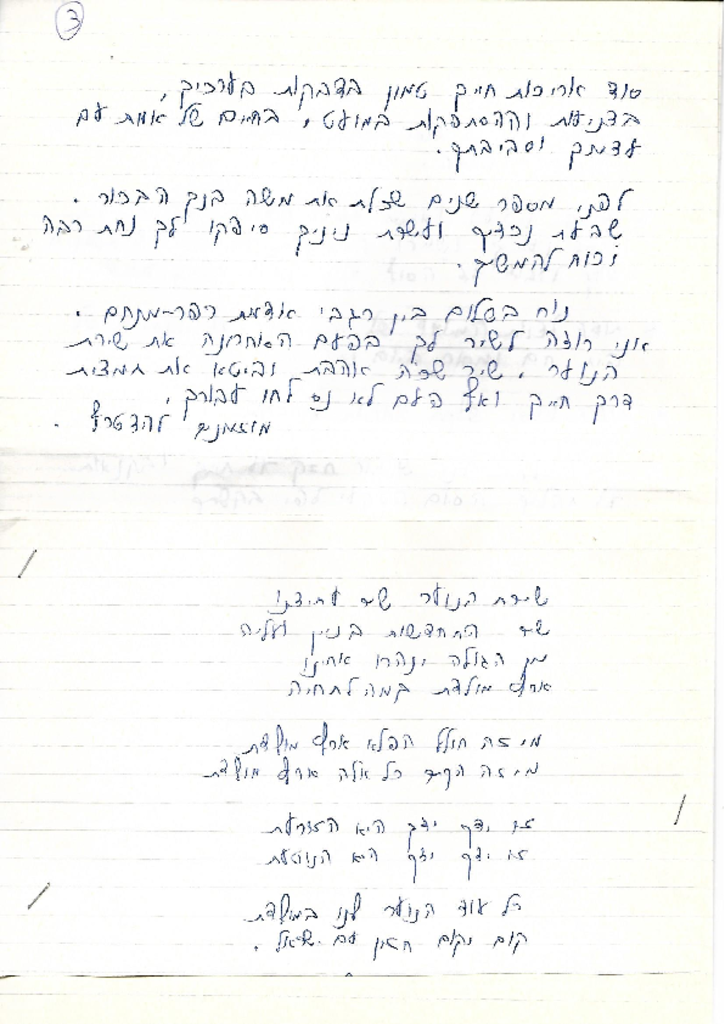 3
סוד אריכות חייך טמון בדבקות בערכיך,
בצניעות וההסתפקות במועט, בחיים של אמת עם
עצמך וסביבתך.
לפני מספר שנים שכלת את משה בנך הבכור.
שבעת נכדיך ועשרת ניניך סיפקו לך נחת רבה
וכוח להמשיך.
נוח בשלום בין רגבי אדמת כפר-מנחם.
אני רוצה לשיר לך בפעם האחרונה את שירת
הנוער. שיר שכ"כ אהבת וביטא את תמצית
דרך חייך ואף פעם לא נס לחו עבורך,
מוזמנים להצטרף.
שירת הנוער שיר עתידנו
שיר התחדשות בנין ועליה
מן הגולה ינהרו אחינו
ארץ מולדת במה לתחיה
מי זה חולל הפלא ארץ מולדת
מי זה הקים כל אלה ארץ מולדת
זו ידך ידך היא הזורעת
זו ידך ידך היא הנוטעת
כל עוד הנוער לנו במולדת
קום יקום חסון עם ישראל.